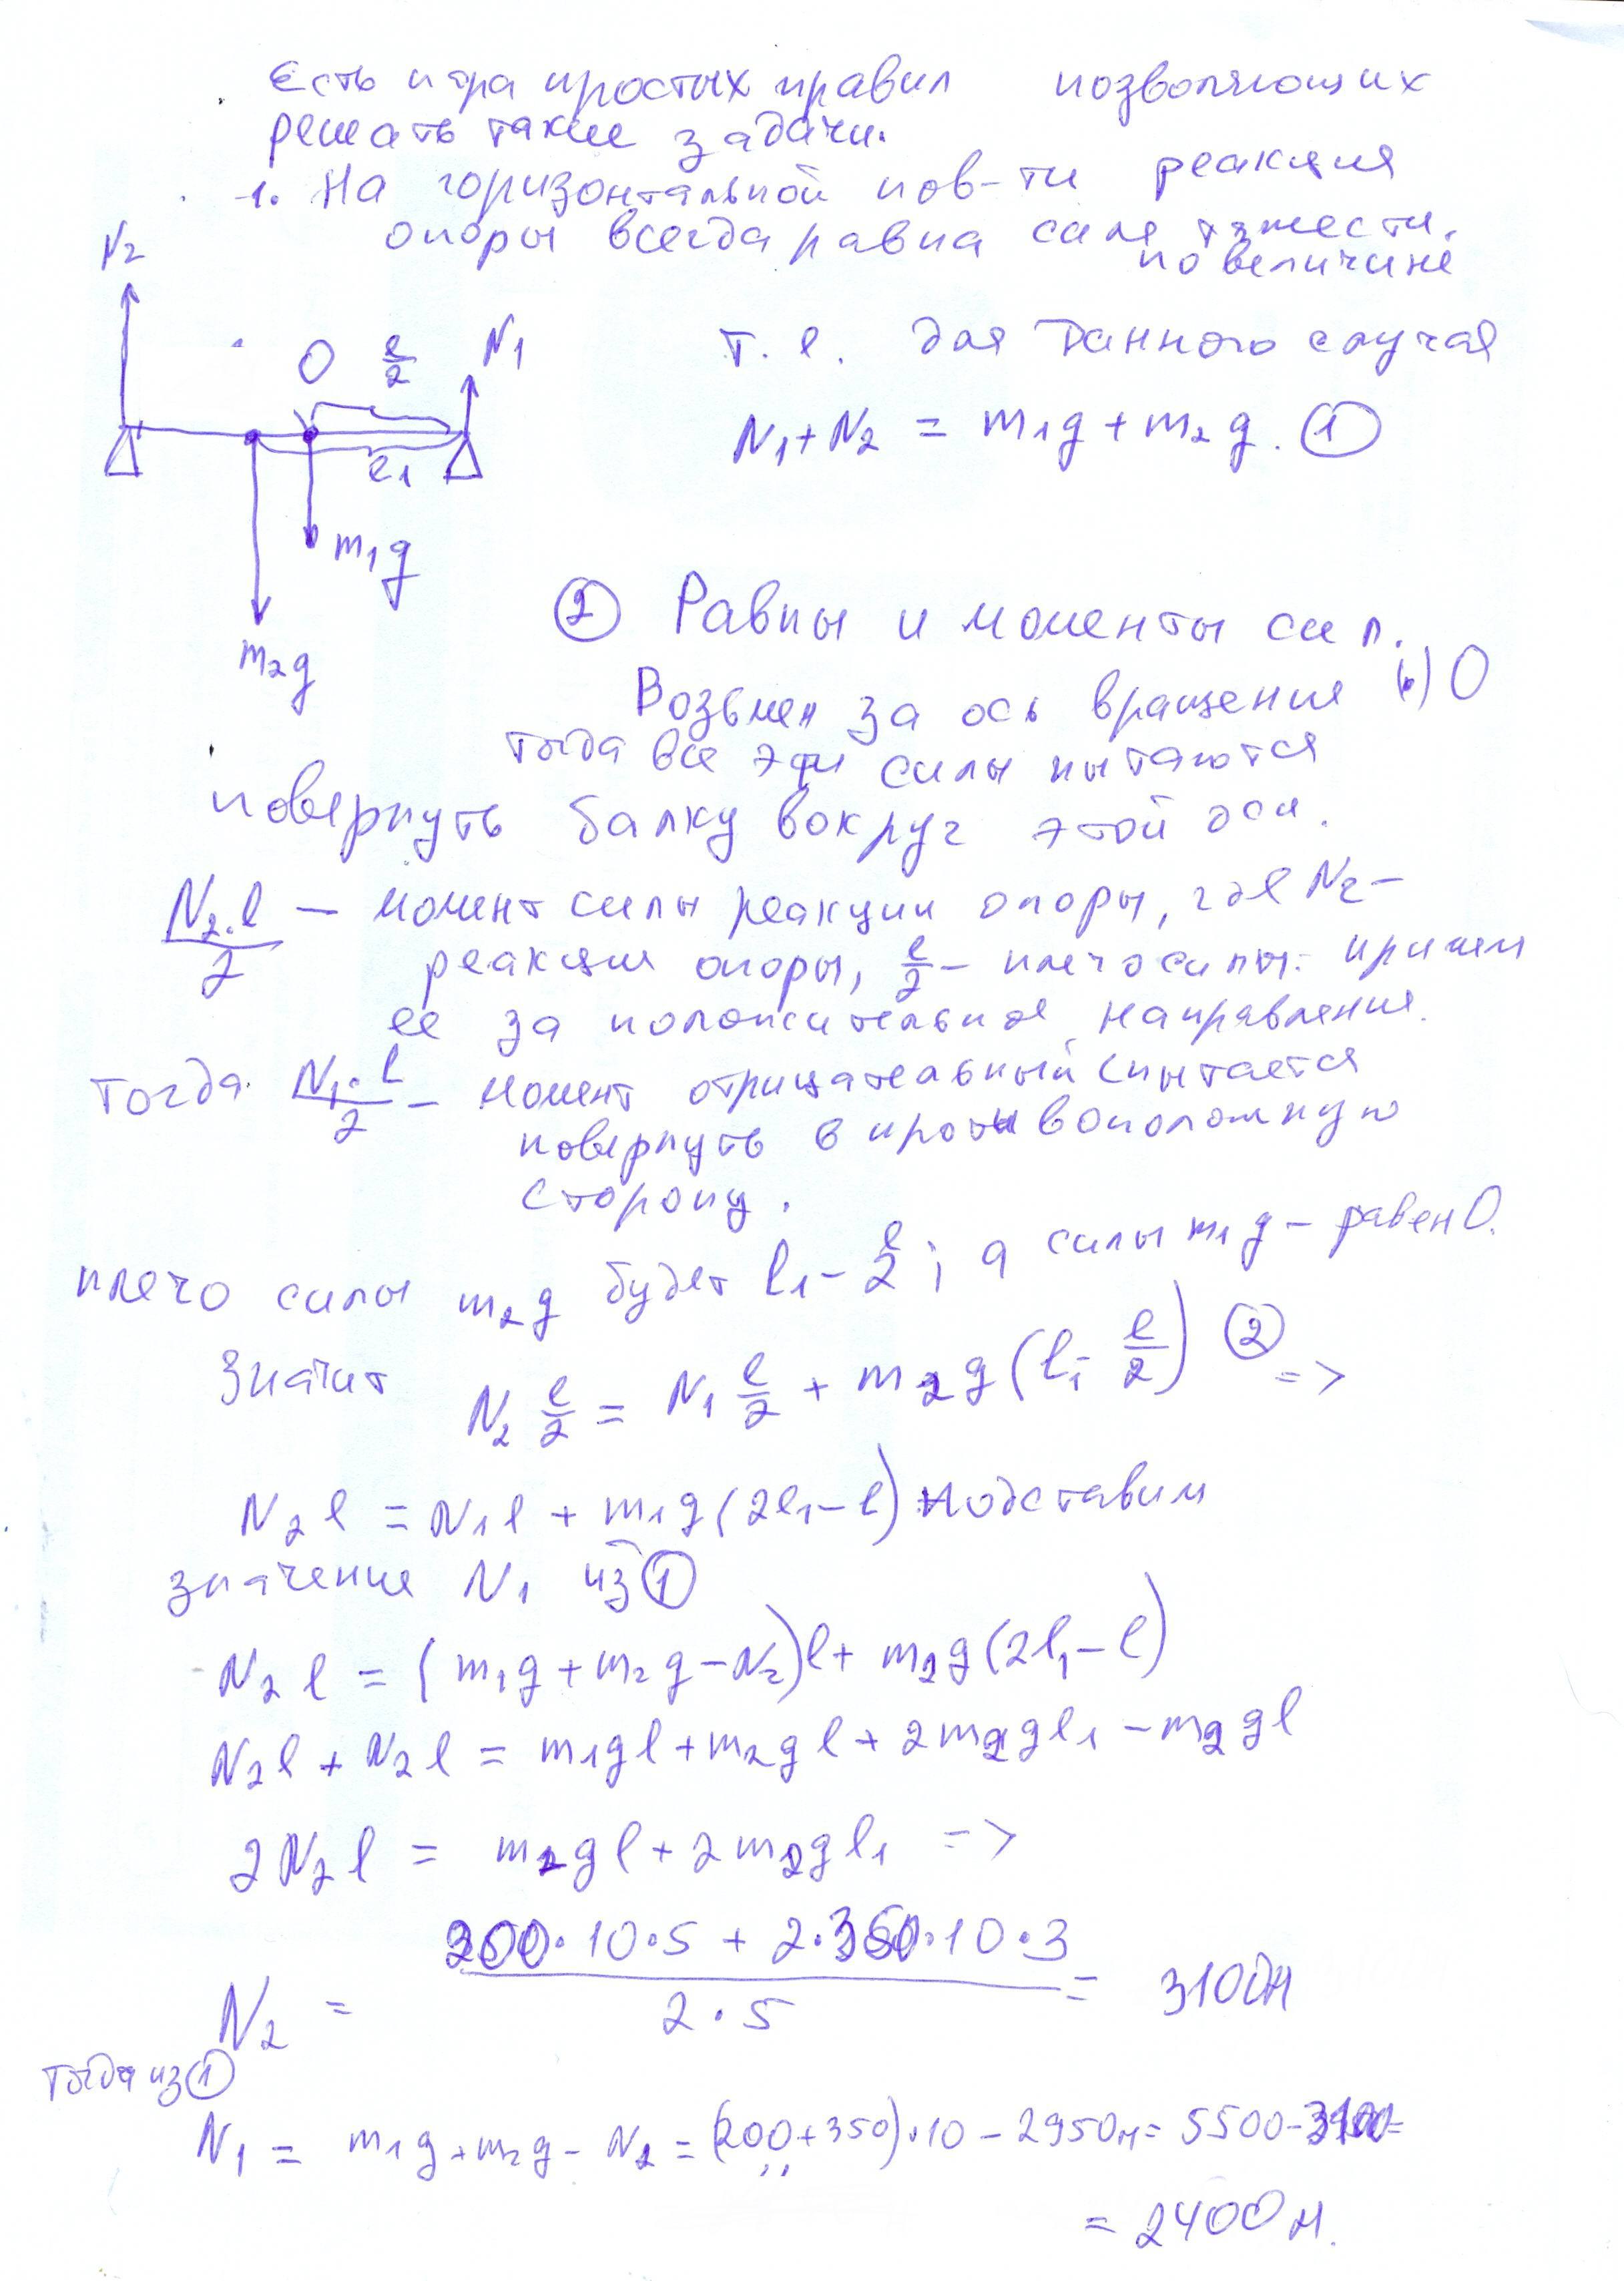 Есть пара простых правил позволяющих
решать такие задачи.
1. На горизонтальной пов-ти реакция
опоры всегда равна силе тяжести.
по величине
N2
O l/2 N1
т.е. для данного случая
N1+N2 = m1g+m2g. ①
l1
m1g
m2g
② Равны и моменты сил.
Возьмем за ось вращения (•) O
тогда все эти силы пытаются
повернуть балку вокруг этой оси.
N2·l/2 — момент силы реакции опоры, где N2 —
реакция опоры, l/2 — плечо силы. примем
ее за положительное направление.
Тогда N1·l/2 — момент отрицательный (пытается
повернуть в противоположную
сторону.
плечо силы m2g будет l1 - l/2; а силы m1g - равен 0.
Значит N2 l/2 = N1 l/2 + m2g(l1 - l/2) ② =>
N2l = N1l + m1g(2l1-l) подставим
значение N1 из ①
N2l = (m1g+m2g-N2)l + m2g(2l1-l)
N2l + N2l = m1gl+m2gl+2m2gl1-m2gl
2N2l = m2gl+2m2gl1 =>
N2 = 200·10·5 + 2·350·10·3 / 2·5 = 3100н
Тогда из ①
N1 = m1g+m2g-N2 = (200+350)·10-2950н = 5500-3100=
= 2400н.